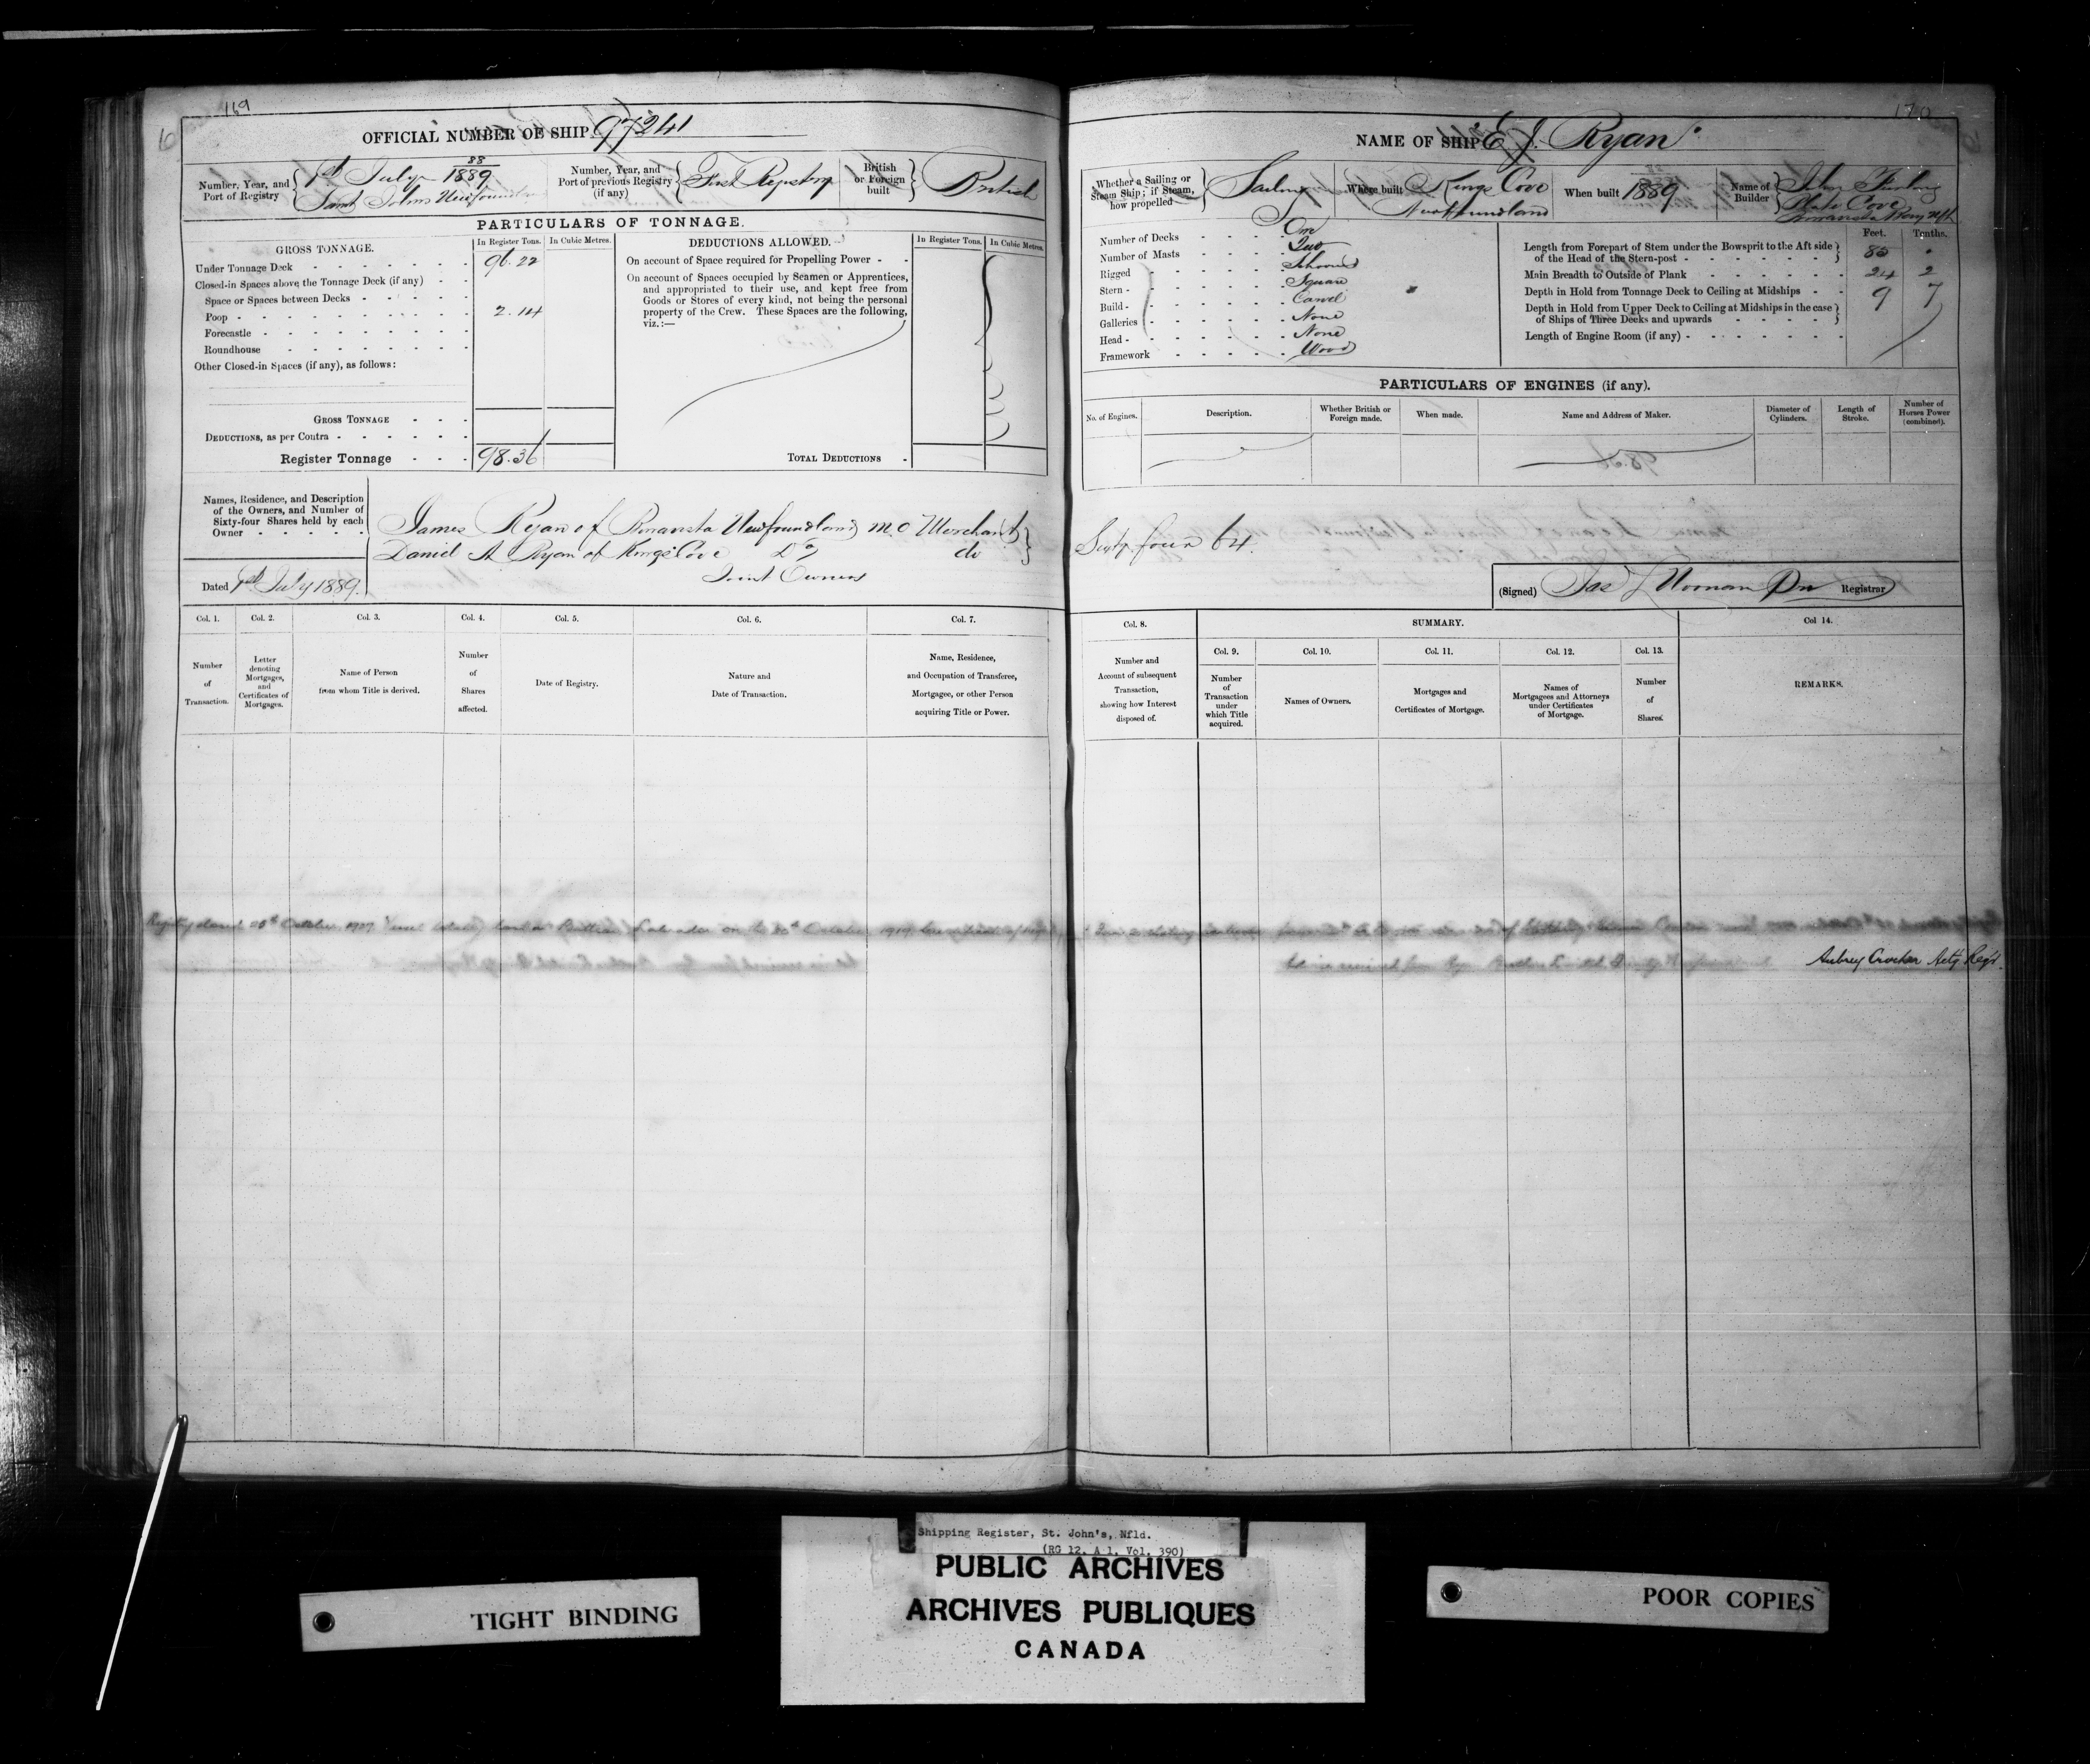 169
OFFICIAL NUMBER OF SHIP 97241
Number, Year, and Port of Registry
88
1st July 1889
Saint Johns Newfoundland
Number, Year, and Port of previous Registry (if any)
First Registry
British or Foreign built
British
PARTICULARS OF TONNAGE.
GROSS TONNAGE.
In Register Tons.
In Cubic Metres.
Under Tonnage Deck 96.22
Closed-in Spaces above the Tonnage Deck (if any)
Space or Spaces between Decks
Poop 2.14
Forecastle
Roundhouse
Other Closed-in Spaces (if any), as follows:
GROSS TONNAGE
DEDUCTIONS, as per Contra
Register Tonnage 98.36
DEDUCTIONS ALLOWED.
In Register Tons.
In Cubic Metres.
On account of Space required for Propelling Power
On account of Spaces occupied by Seamen or Apprentices,
and appropriated to their use, and kept free from
Goods or Stores of every kind, not being the personal
property of the Crew. These Spaces are the following,
viz.:—
TOTAL DEDUCTIONS
Names, Residence, and Description
of the Owners, and Number of
Sixty-four Shares held by each
Owner
James Ryan of Bonavista Newfoundland Merchant
Daniel A Ryan of Kings Cove Do do
Joint Owners
Dated 1st July 1889.
Col. 1. Number of Transaction.
Col. 2. Letter denoting Mortgages, and Certificates of Mortgages.
Col. 3. Name of Person from whom Title is derived.
Col. 4. Number of Shares affected.
Col. 5. Date of Registry.
Col. 6. Nature and Date of Transaction.
Col. 7. Name, Residence, and Occupation of Transferee, Mortgagee, or other Person acquiring Title or Power.
170
NAME OF SHIP E J. Ryan
Whether a Sailing or Steam Ship; if Steam, how propelled
Sailing
Where built
Kings Cove
Newfoundland
When built 1889
Name of Builder
John Furlong
Plate Cove
Number of Decks One
Number of Masts Two
Rigged Schooner
Stern Square
Build Carvel
Galleries None
Head None
Framework Wood
Feet. Tenths.
Length from Forepart of Stem under the Bowsprit to the Aft side
of the Head of the Stern-post 85
Main Breadth to Outside of Plank 24 2
Depth in Hold from Tonnage Deck to Ceiling at Midships 9 7
Depth in Hold from Upper Deck to Ceiling at Midships in the case
of Ships of Three Decks and upwards
Length of Engine Room (if any)
PARTICULARS OF ENGINES (if any).
No. of Engines.
Description.
Whether British or Foreign made.
When made.
Name and Address of Maker.
Diameter of Cylinders.
Length of Stroke.
Number of Horses Power (combined).
Sixty four 64.
(Signed) Registrar
Col. 8. Number and Account of subsequent Transaction, showing how Interest disposed of.
SUMMARY.
Col. 9. Number of Transaction under which Title acquired.
Col. 10. Names of Owners.
Col. 11. Mortgages and Certificates of Mortgage.
Col. 12. Names of Mortgagees and Attorneys under Certificates of Mortgage.
Col. 13. Number of Shares.
Col 14. REMARKS.
October 1907 Vessel totally lost at Labrador on the October 1907
Aubrey Crocker Actg Regr.
Shipping Register, St. John's, Nfld.
(RG 12, A 1, Vol. 390)
PUBLIC ARCHIVES
ARCHIVES PUBLIQUES
CANADA
TIGHT BINDING
POOR COPIES